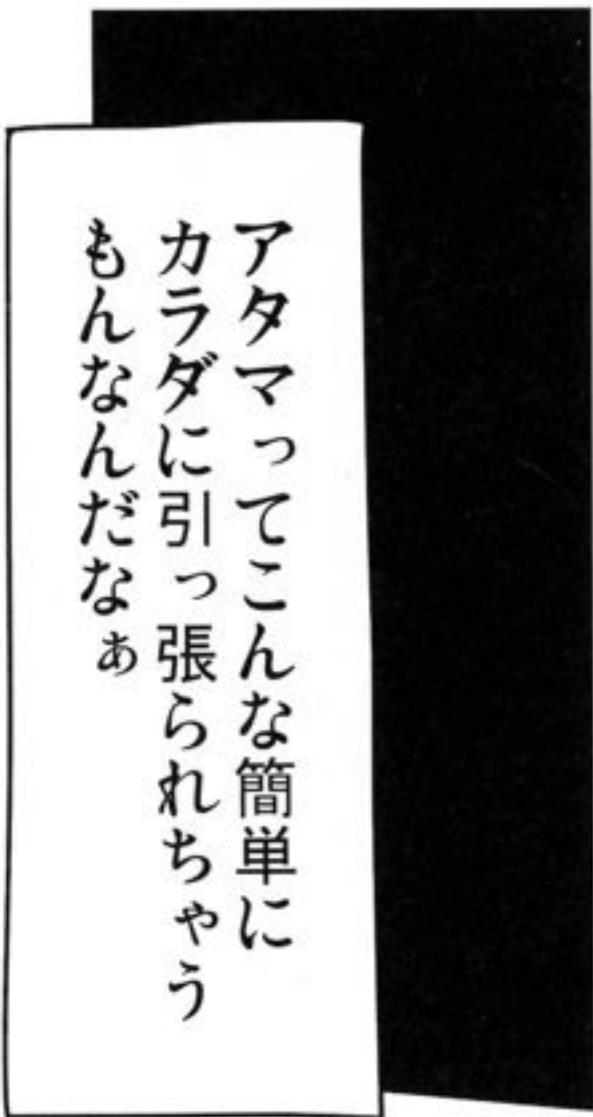 アタマってこんな簡単に
カラダに引っ張られちゃう
もんなんだなぁ